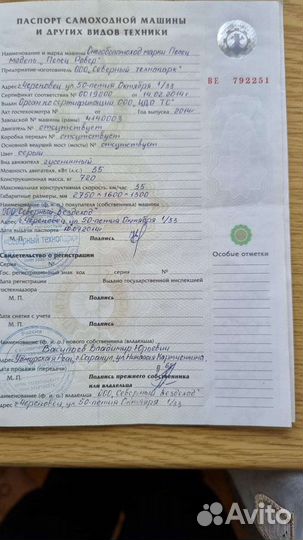 ПАСПОРТ САМОХОДНОЙ МАШИНЫ
И ДРУГИХ ВИДОВ ТЕХНИКИ
Наименование и марка машины Снегоболотоход марки Пелец
модель „Пелец Ровер"
Предприятие-изготовитель ООО „Северный технопарк"
Адрес г.Череповец ул. 50-летия Октября 1/33
ВЕ 792251
Сертификат соответствия № 0019000 от 14.02.2014г
Выдан Орган по сертификации ООО „ЦДО ТС"
Акт гостехосмотра № от Год выпуска 2014г
Заводской № машины (рамы) 4140003
Двигатель № отсутствует
Коробка передач № отсутствует
Основной ведущий мост (мосты) № отсутствует
Цвет серый
Вид движителя гусеничный
Мощность двигателя, кВт (л.с.) 35
Конструкционная масса, кг 720
Максимальная конструктивная скорость, км/час 35
Габаритные размеры, мм 2750×1600×1500
Наименование (ф. и о.) покупателя (собственника) машины
ООО „Северный Вездеход"
г. Череповец, ул. 50-летия Октября 1/33
Дата выдачи паспорта .04.2014г
М. П. Подпись
Северный технопарк
Свидетельство о регистрации
Особые отметки
Серия №
Гос. регистрационный знак код серия №
Дата регистрации Выдано государственной инспекцией
гостехнадзора
М. П. Подпись
Дата снятия с учета
М. П. Подпись
Наименование (ф. и о.) нового собственника (владельца)
Васильев Владимир Юрьевич
Адрес Удмурская Респ, г. Сарапул, ул.
Дата продажи (передачи)
М. П. Подпись прежнего собственника
или владельца
Наименование (ф. и о.) собственника (владельца) ООО „Северный Вездеход"
Адрес г. Череповец, ул 50-летия Октября 1/33
Avito